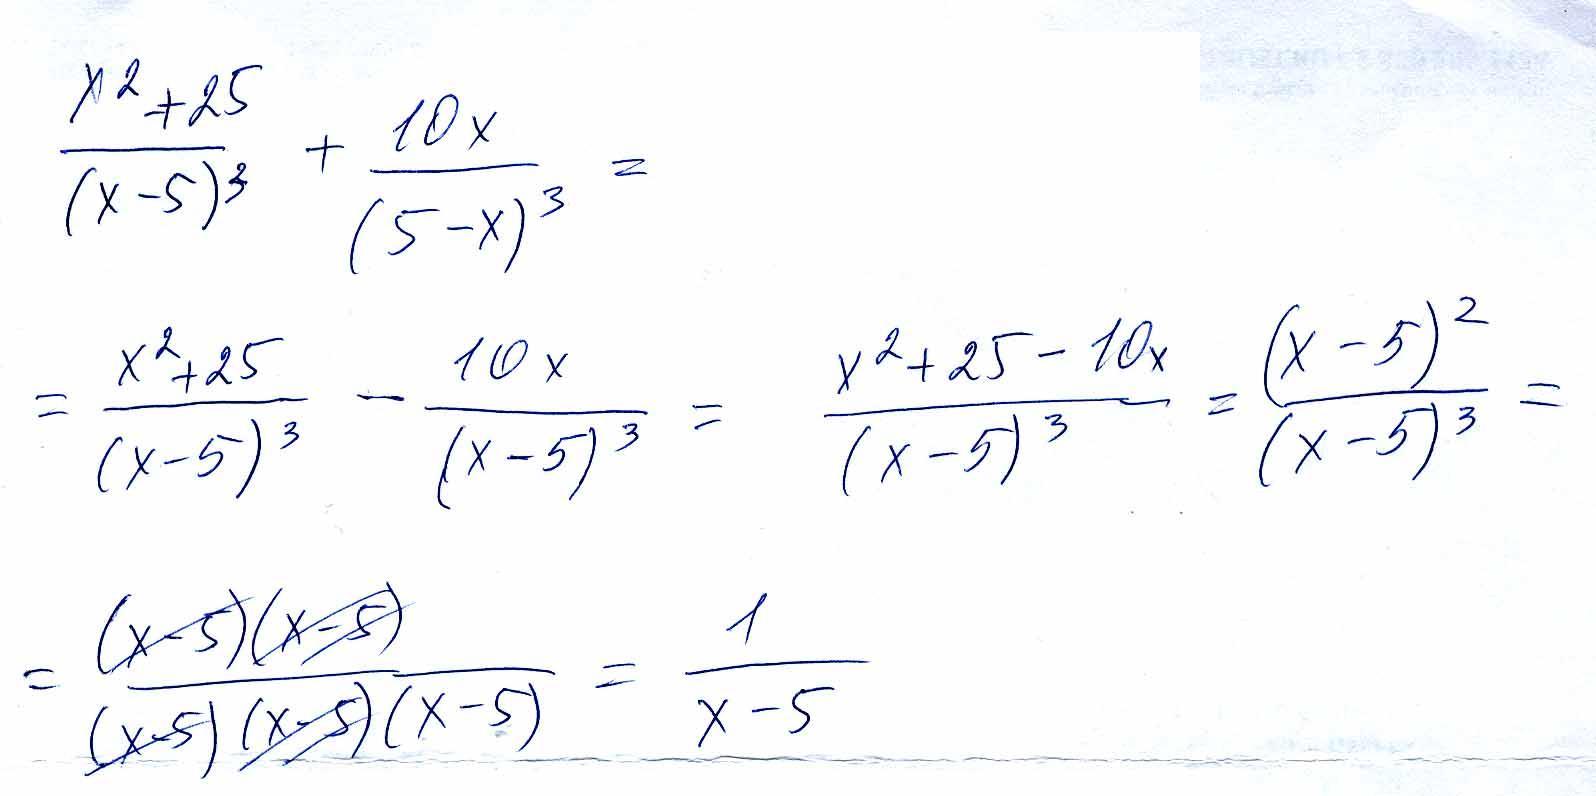 (x²+25)/(x-5)³ + 10x/(5-x)³ =
= (x²+25)/(x-5)³ - 10x/(x-5)³ = (x²+25-10x)/(x-5)³ = (x-5)²/(x-5)³ =
= (x-5)(x-5)/(x-5)(x-5)(x-5) = 1/(x-5)